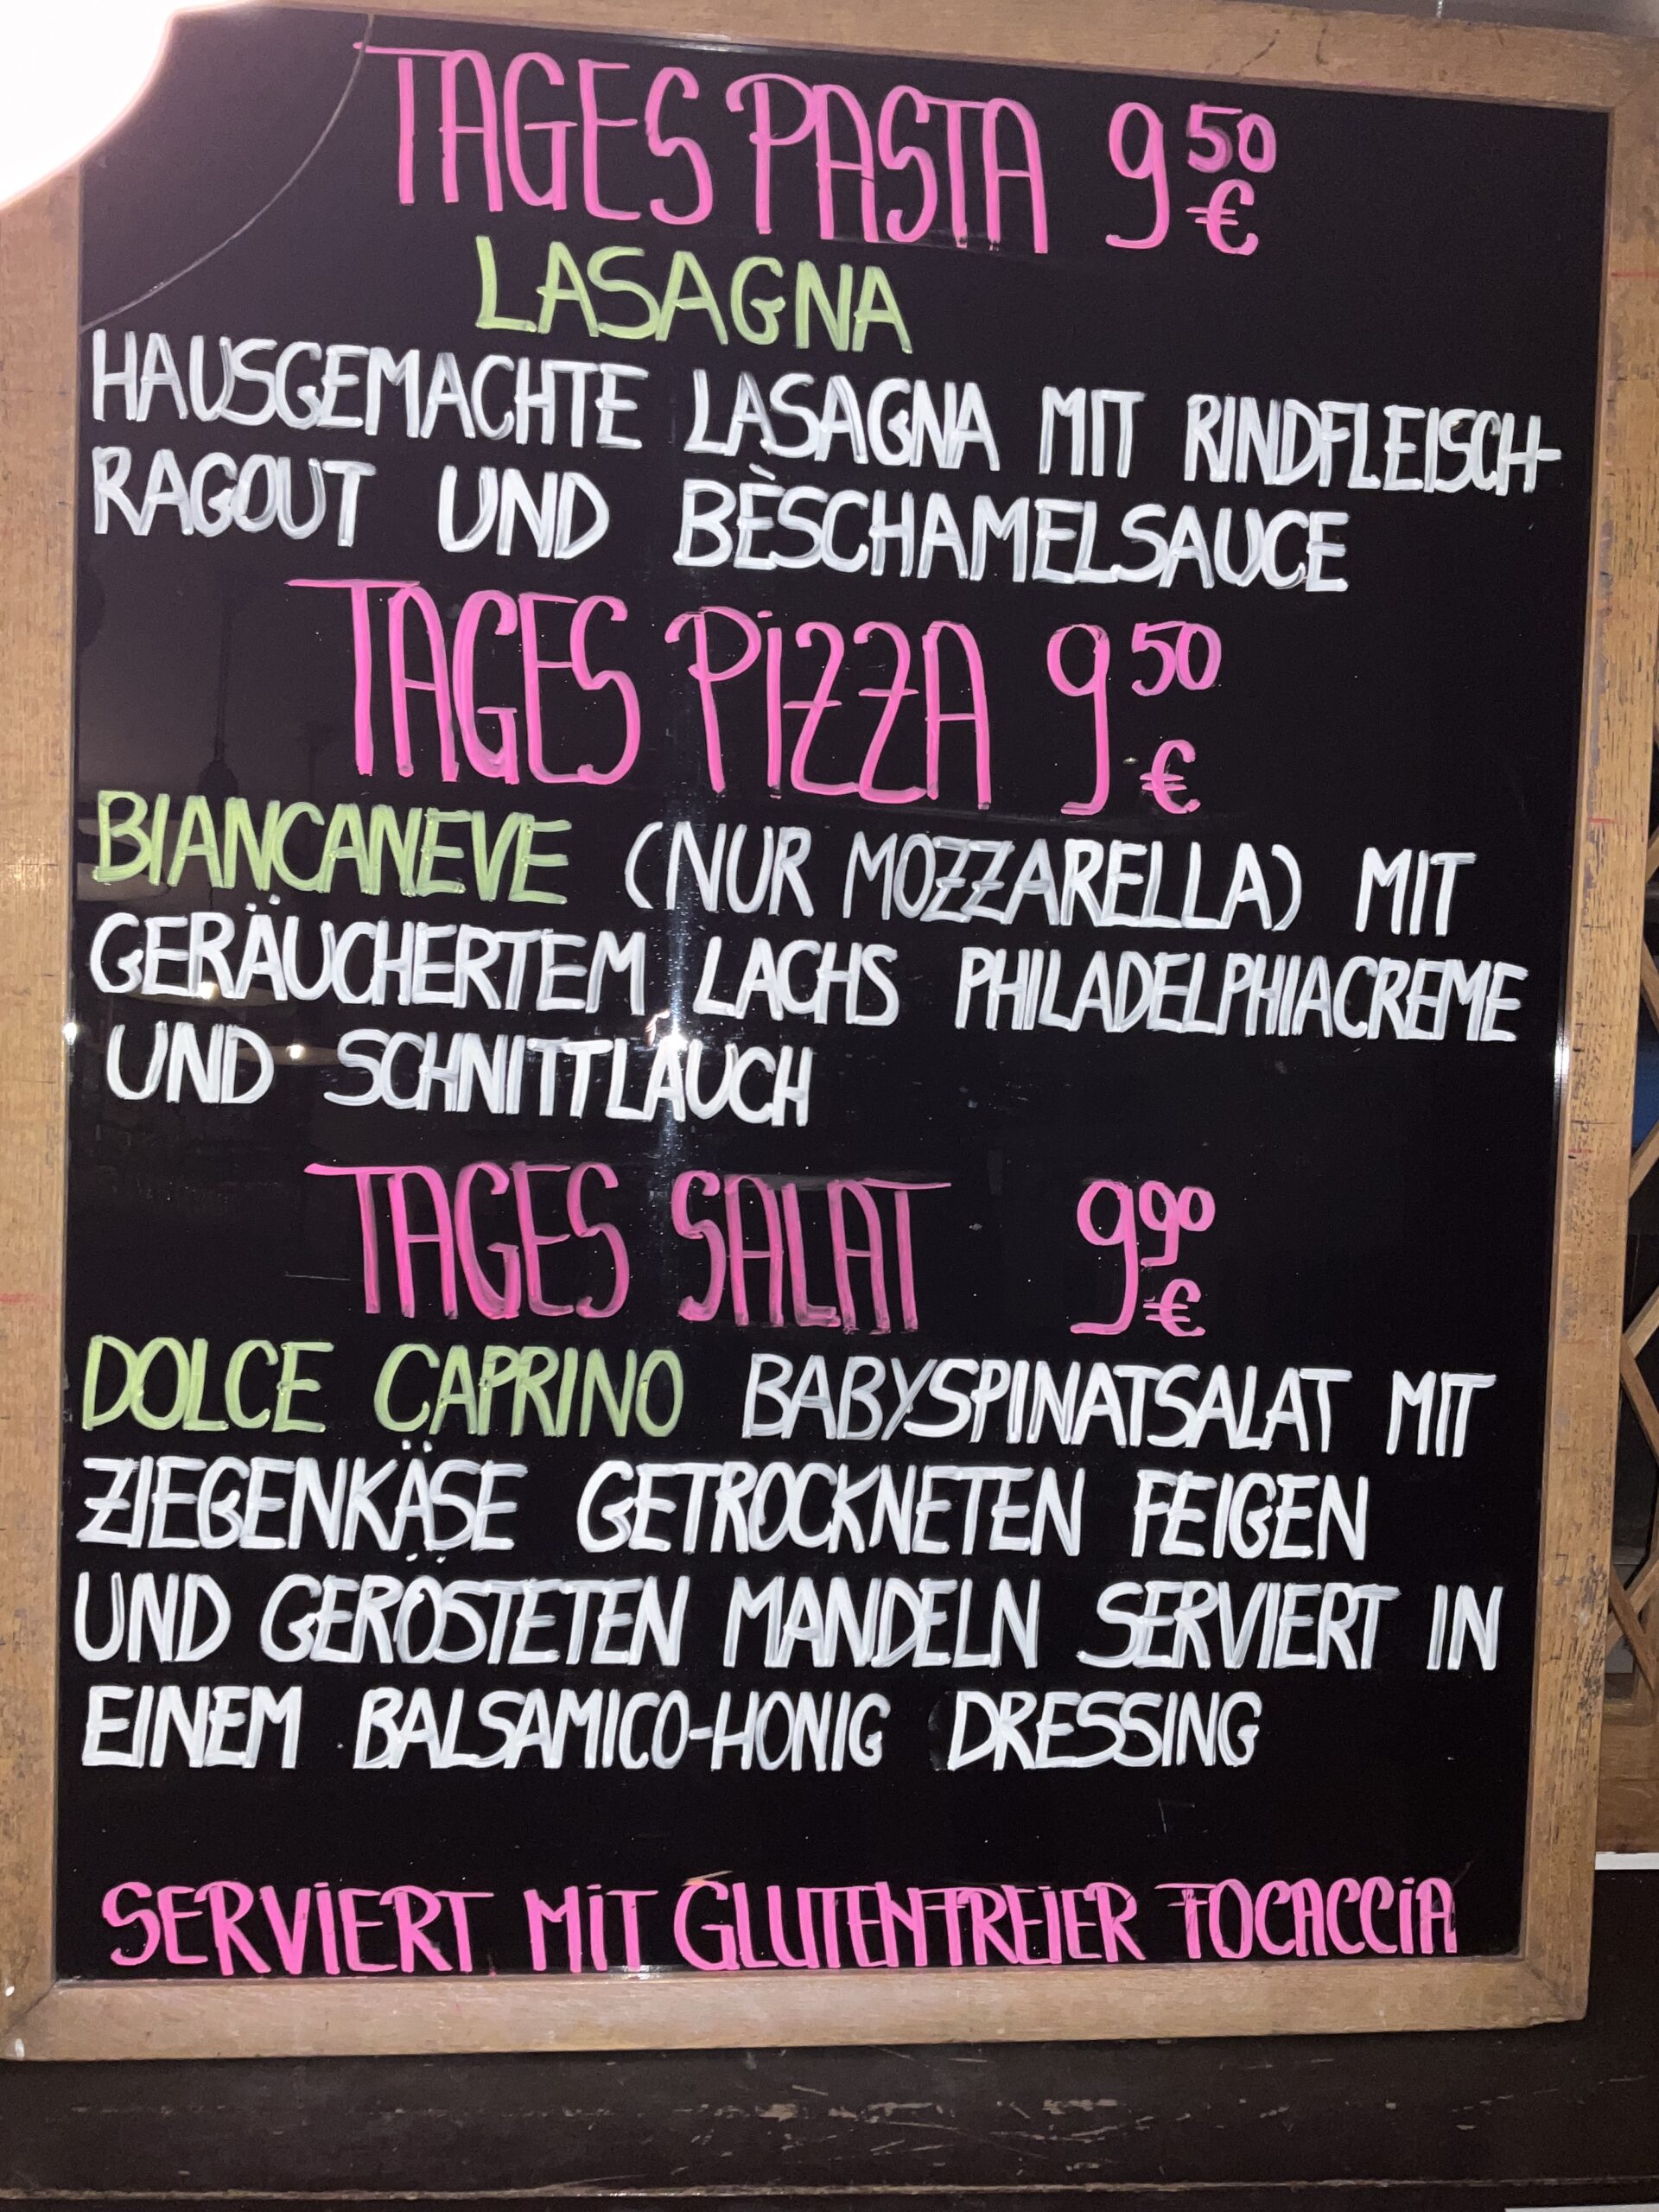 TAGES PASTA 9 50 €
LASAGNA
HAUSGEMACHTE LASAGNA MIT RINDFLEISCH-
RAGOUT UND BÈSCHAMELSAUCE
TAGES PiZZA 9 50 €
BIANCANEVE (NUR MOZZARELLA) MIT
GERÄUCHERTEM LACHS PHILADELPHIACREME
UND SCHNITTLAUCH
TAGES SALAT 9 90 €
DOLCE CAPRINO BABYSPINATSALAT MIT
ZIEGENKÄSE GETROCKNETEN FEIGEN
UND GERÖSTETEN MANDELN SERVIERT IN
EINEM BALSAMICO-HONIG DRESSING
SERViERT MiT GLUTENFREiER FOCACCiA